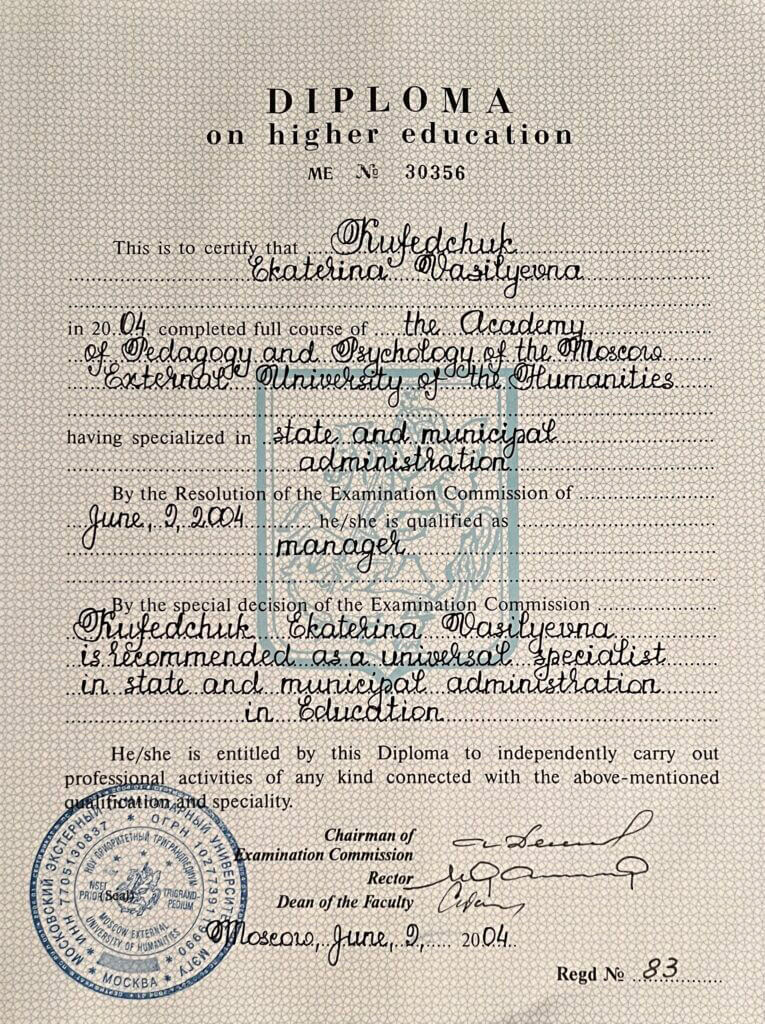 DIPLOMA
on higher education
ME № 30356
This is to certify that Kufedchuk
Ekaterina Vasilyevna
in 2004 completed full course of the Academy
of Pedagogy and Psychology of the Moscow
External University of the Humanities
having specialized in state and municipal
administration
By the Resolution of the Examination Commission of
June, 9, 2004 he/she is qualified as
manager
By the special decision of the Examination Commission
Kufedchuk Ekaterina Vasilyevna
is recommended as a universal specialist
in state and municipal administration
in Education
He/she is entitled by this Diploma to independently carry out
professional activities of any kind connected with the above-mentioned
qualification and speciality.
Chairman of
Examination Commission
Rector
Dean of the Faculty
(Seal)
МОСКОВСКИЙ ЭКСТЕРНЫЙ ГУМАНИТАРНЫЙ УНИВЕРСИТЕТ
МЭГУ * МОСКВА * ИНН 7705130837 * ОГРН
НОУ ПРИОРИТЕТНЫЙ ТРИГРАНДПЕДИУМ
NSEI PRIOR TRIGRAND-PEDIUM
MOSCOW EXTERNAL
UNIVERSITY OF HUMANITIES
Moscow, June, 9, 2004
Regd № 83